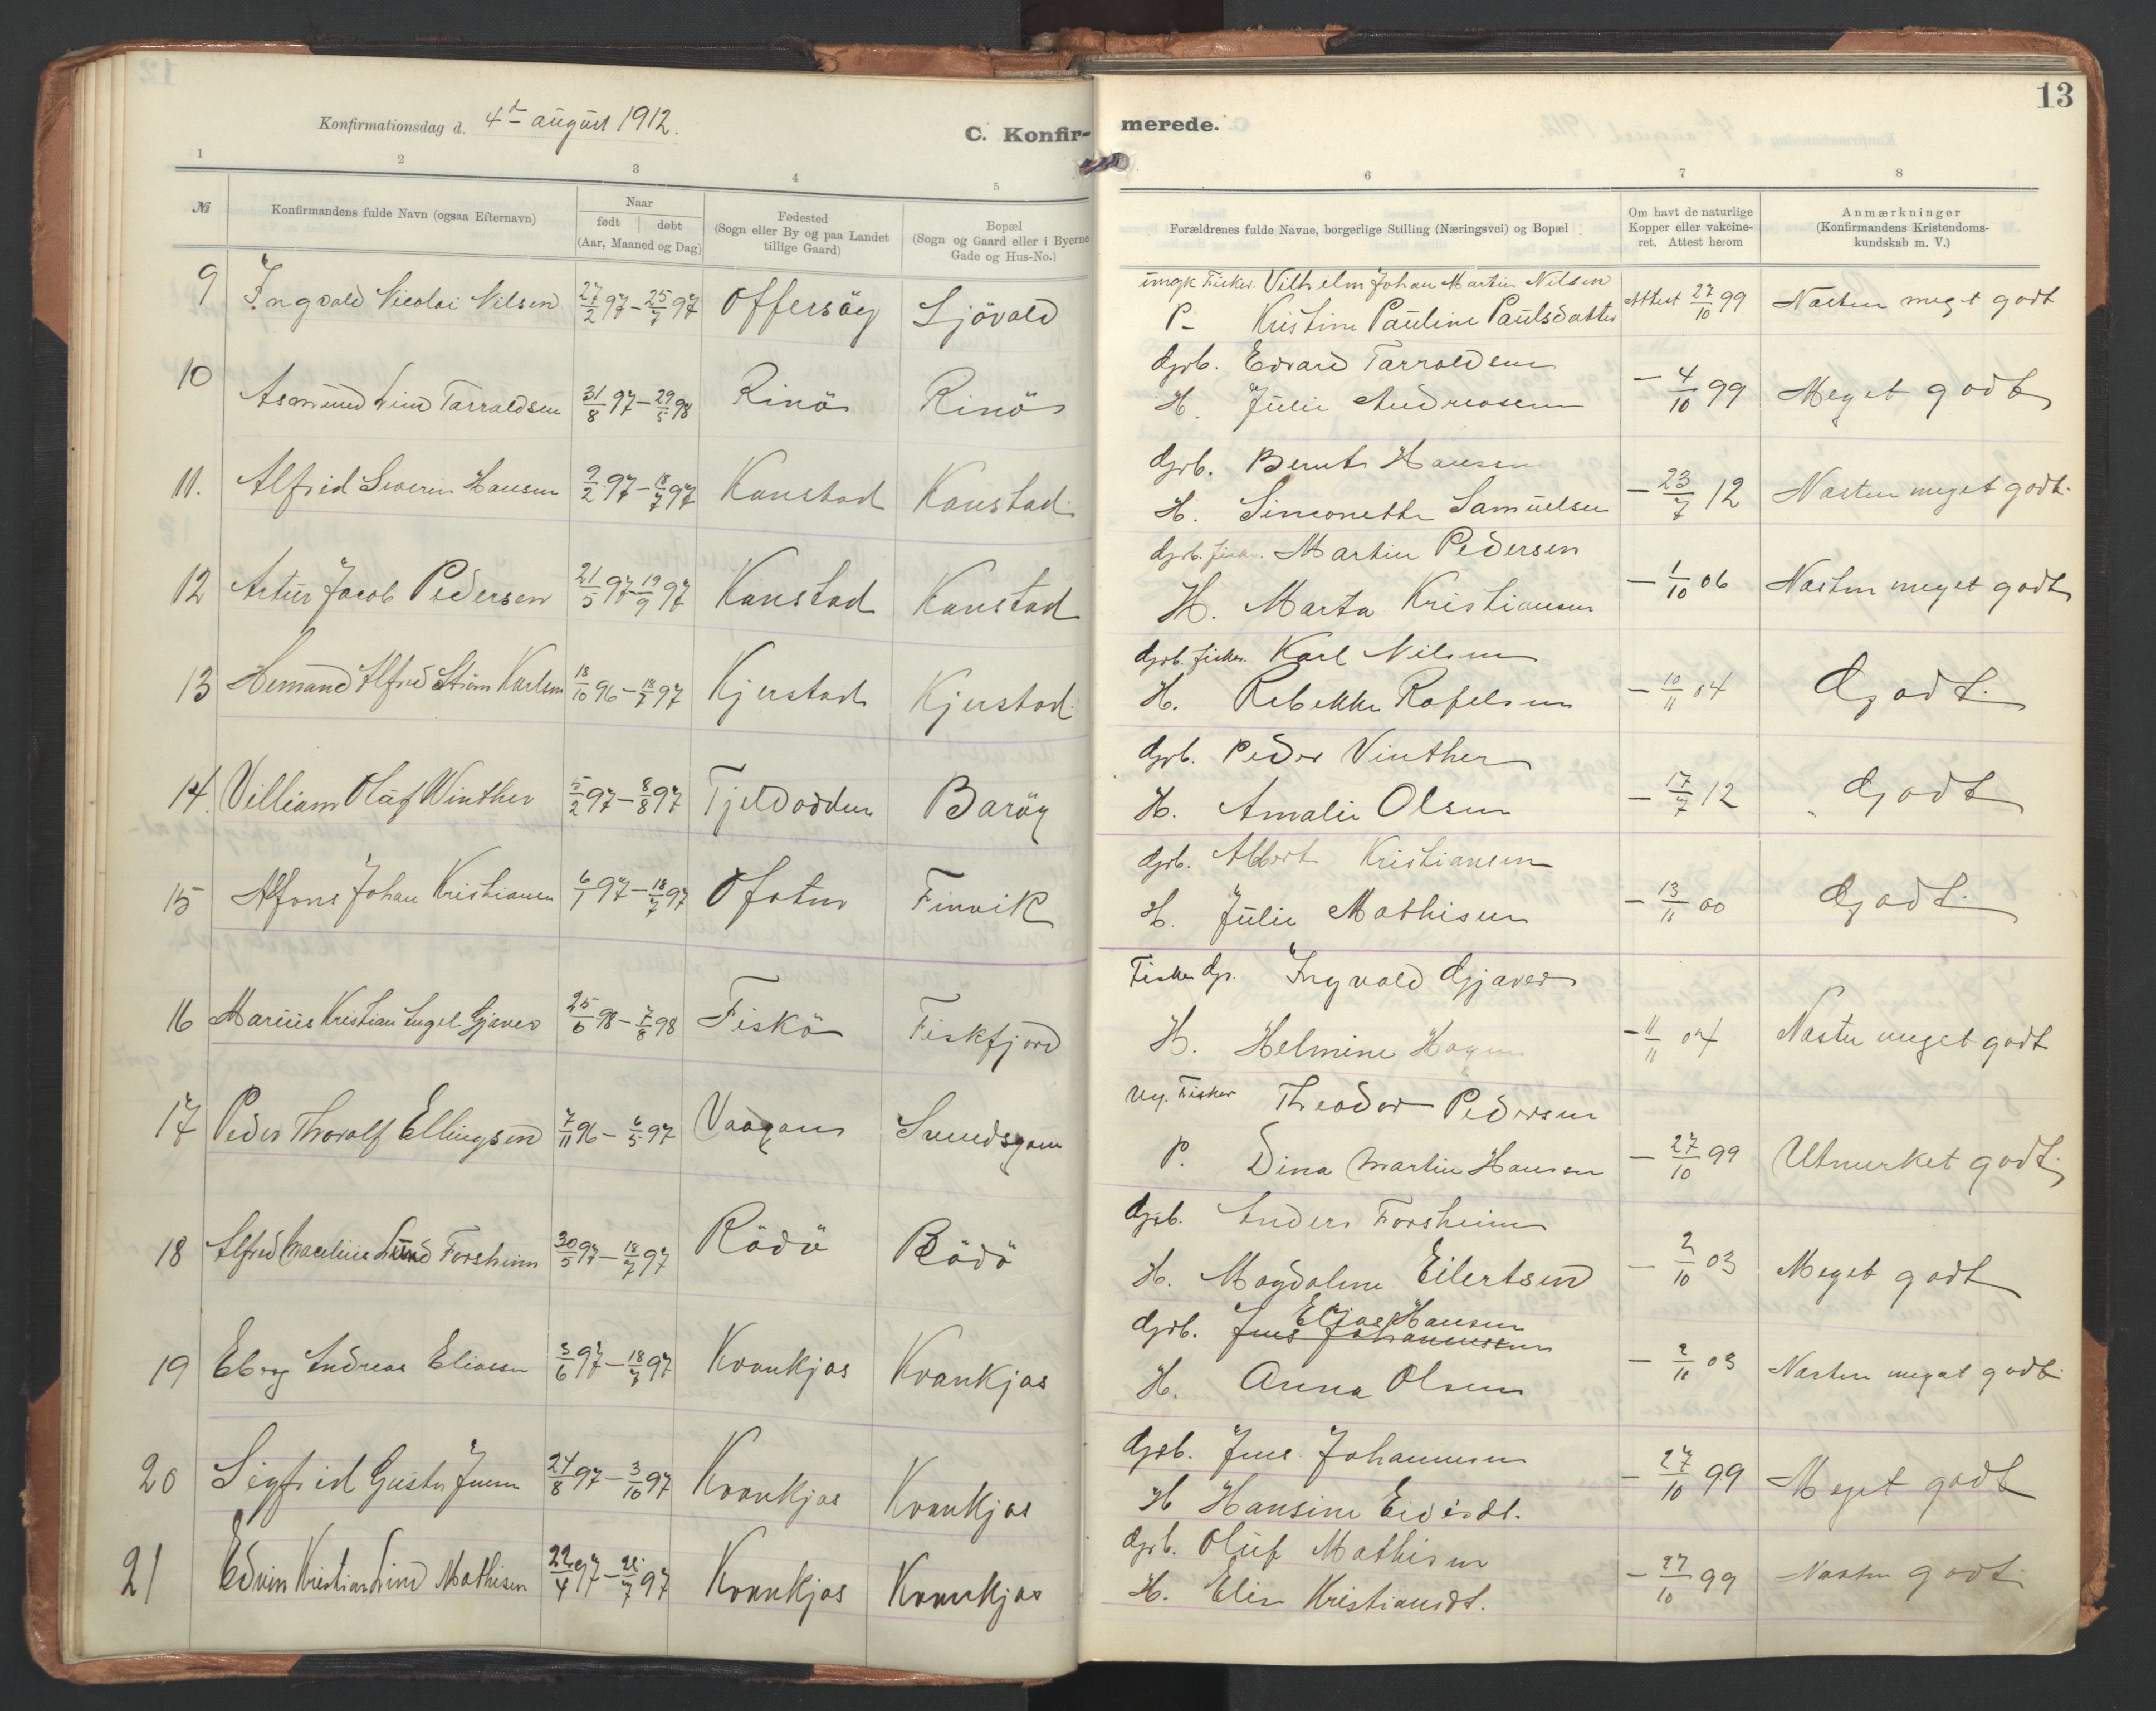 Konfirmationsdag d. 4de august 1912.
C. Konfir-
merede.
13
1 2 3 4 5
6 7 8
№ Konfirmandens fulde Navn (ogsaa Efternavn)
Naar
født døbt
(Aar, Maaned og Dag)
Fødested
(Sogn eller By og paa Landet
tillige Gaard)
Bopæl
(Sogn og Gaard eller i Byerne
Gade og Hus-No.)
Forældrenes fulde Navne, borgerlige Stilling (Næringsvei) og Bopæl
Om havt de naturlige
Kopper eller vakcine-
ret. Attest herom
Anmærkninger
(Konfirmandens Kristendoms-
kundskab m. V.)
9 Ingvald Nicolai Nilsen 27/2 97 – 25/7 97 Offersöy Sjövold
ungk Fisker. Vilhelm Johan Martin Nilsen
P. Kristine Pauline Paulsdatter Attest 27/10 99 Næsten meget godt
10 Asmund Lind Tarraldsen 31/8 97 – 29/5 98 Rinö Rinö
Gjrb. Edvard Tarraldsen
H. Julie Andreasen – 4/10 99 Meget godt
11. Alfred Severin Hansen 2/2 97 – 18/7 97 Kanstad Kanstad.
Gjrb. Bernt Hansen
H. Simonette Samuelsen – 23/7 12 Næsten meget godt.
12 Artur Jacob Pedersen 21/5 97 – 19/9 97 Kanstad Kanstad
Gjrb. Martin Pedersen
H. Marta Kristiansen – 1/10 06 Næsten meget godt
13 Alfred Ström Karlsen 18/10 96 – 18/7 97 Kjerstad Kjerstad.
Gjrb. fisker. Karl Nilsen
H. Rebekke Rafelsen – 10/11 04 Godt.
14. Villiam Olaf Winther 5/2 97 – 8/8 97 Tjeldodden Baröy
Gjrb. Peder Vinther
H. Amalie Olsen – 17/7 12 Godt
15 Alfons Johan Kristiansen 6/1 97 – 18/7 97 Ofoten Finvik
Gjrb. Albert Kristiansen
H. Julie Mathisen – 13/11 00 Godt.
16 Marius Kristian Engel Gjæver 25/6 98 – 7/8 98 Fiskö Fiskfjord
Fisker Gj. Ingvald Gjæver
H. Helmine Hagen – 11/11 04 Næsten meget godt
17 Peder Thoralf Ellingsen 7/11 96 – 6/5 97 Vaagan
ug. Fisker Theodor Pedersen
P. Dina Martin Hansen – 27/10 99 Utmerket godt.
18 Alfred Marelius Lund Forsheim 30/5 97 – 18/7 97 Rödö Rödö
Gjrb. Anders Forsheim
H. Magdalene Eilertsen – 2/10 03 Meget godt
19 Eberg Andreas Eliassen 5/6 97 – 18/7 97 Kvankjos Kvankjos
Elias Hansen
Gjrb. Jens Johannessen
H. Anna Olsen – 2/10 03 Næsten meget godt.
20 Sigfrid Gustav Jensen 24/8 97 – 3/10 97 Kvankjos Kvankjos
Gjrb. Jens Johannesen
H Hansine Eidisdt. – 27/10 99 Meget godt
21 Edvin Kristian Lind Mathisen 22/4 97 – 22/7 97 Kvankjos Kvankjos
Gjrb. Oluf Mathisen
H. Elin Kristiansdt. – 27/10 99 Næsten godt